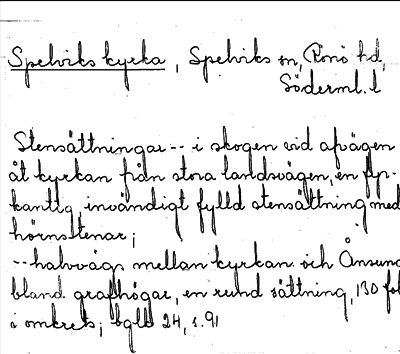 Spelviks kyrka, Spelviks sn, Rönö hd,
Söderml. l
Stensättningar -- i skogen vid afvägen
åt kyrkan från stora landsvägen, en fyr-
kantig, invändigt fylld stensättning med
hörnstenar;
-- halvvägs mellan kyrkan och Ånsund
bland grafhögar, en rund sättning, 130 fot
i omkrets; bgld 24, s. 91